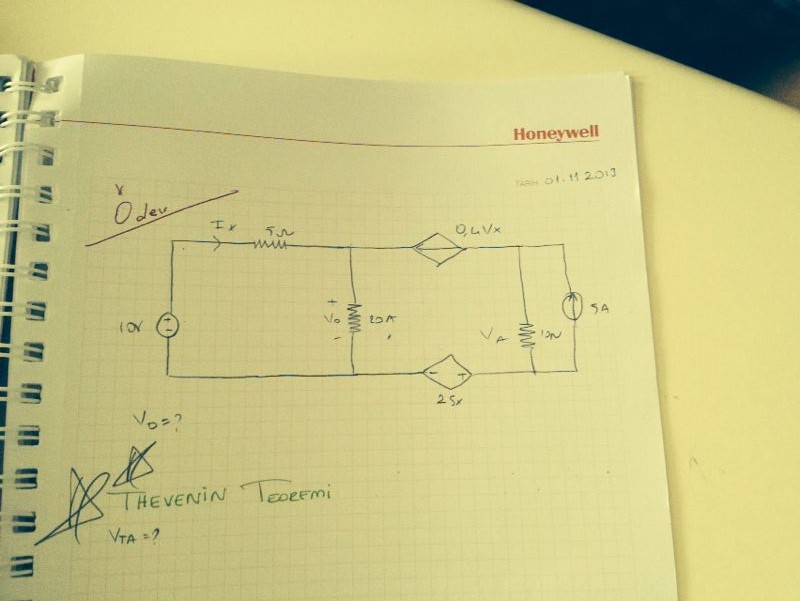 Honeywell
TARİH 01.11.2013
Ödev
Ix
5Ω
0,4Vx
10V
+
Vo
-
20Λ
VA
5A
- +
Vo=?
THEVENİN TEOREMİ
VTA=?